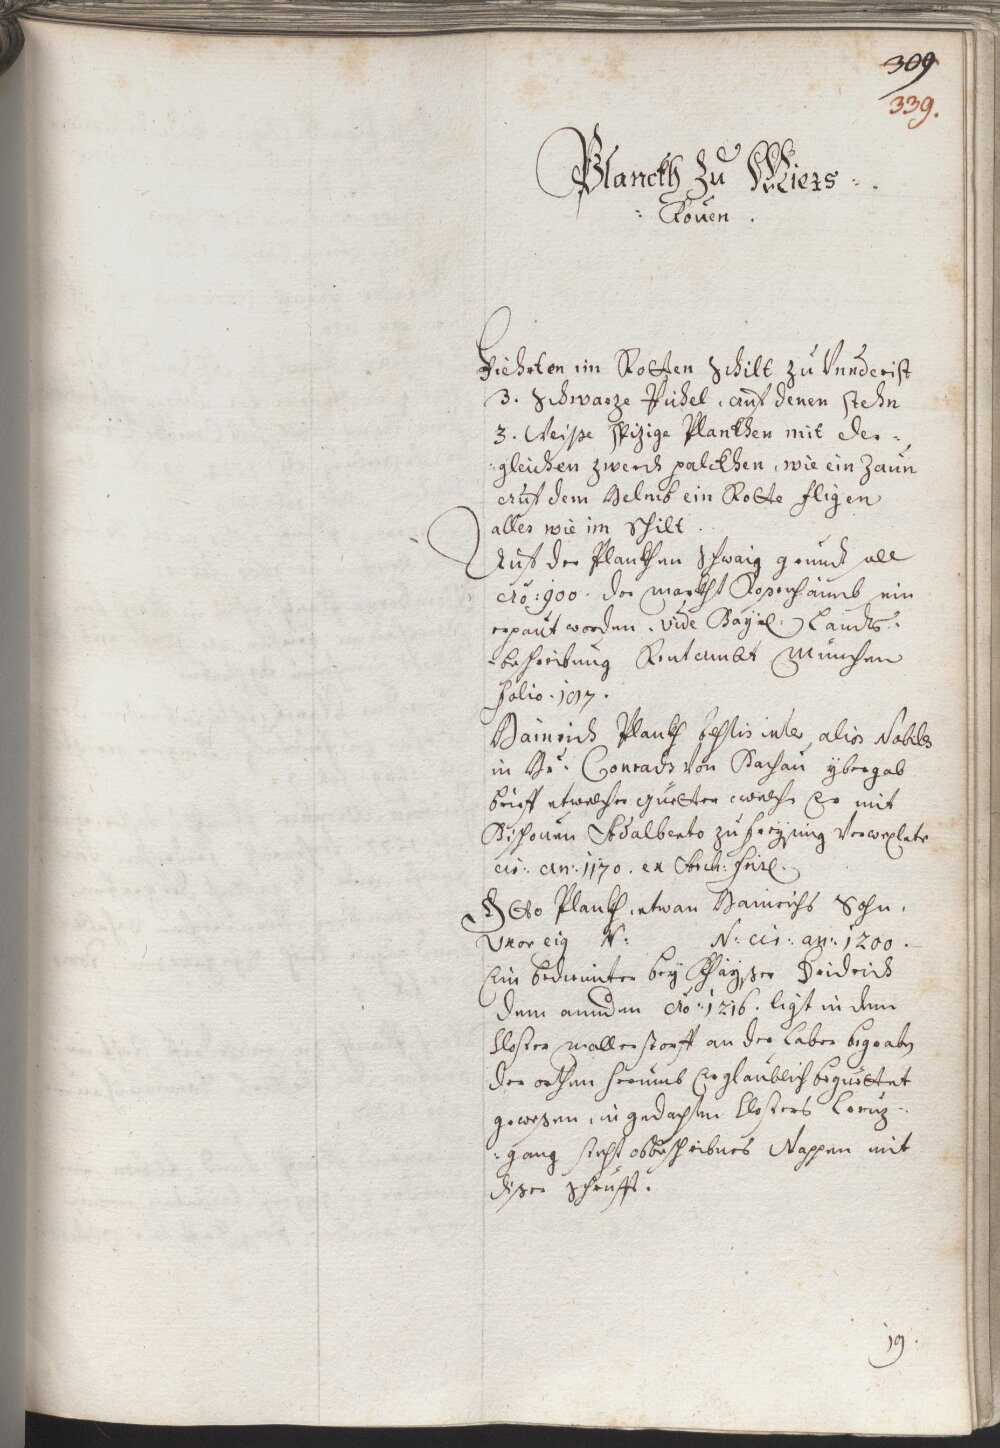 309
339.
Planckh zu Wiers-
Kouen.
Fiehrten im Rotten Schilt zu Vnnderist
3. Schwarze Pichel, auf denen stehn
3. Weisse spizige Planckhen mit der-
gleichen zwerch palckhen, wie ein Zaun
auf dem Helmb ein Rotte fligen
alles wie im Schilt.
Auf der Planckhen Schwaig grundt
ao: 900. der marckht Rosenhaimb ein
erpaut worden. vide Bayrl: Landts-
beschreibung Rentambt München
folio. 1017.
Hainrich Planckh testis inter alios Nobiles
in Hr: Conrads von Dachau ybergab
brieff etwelcher guetter welche Er mit
Bischouen Adalberto zu Freysing verwexlete
an: 1170. ex Arch: Fris:
Otto Planckh, etwan Hainrichs Sohn.
Vxor eig N: N: an: 1200.
Ein bedienter bey Khayser Fridrich
dem anndern ao: 1216. ligt in dem
Closter mallerstorff an der Laber begraben
der orthen herumb Erglaublich beguettet
gewesen, in gedachten Closters Creuz-
gang steht obbeschribnes Wappen mit
diser schrufft.
19.